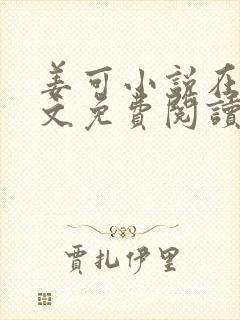 姜可小说在
文免費閱讀
賈扎伊里